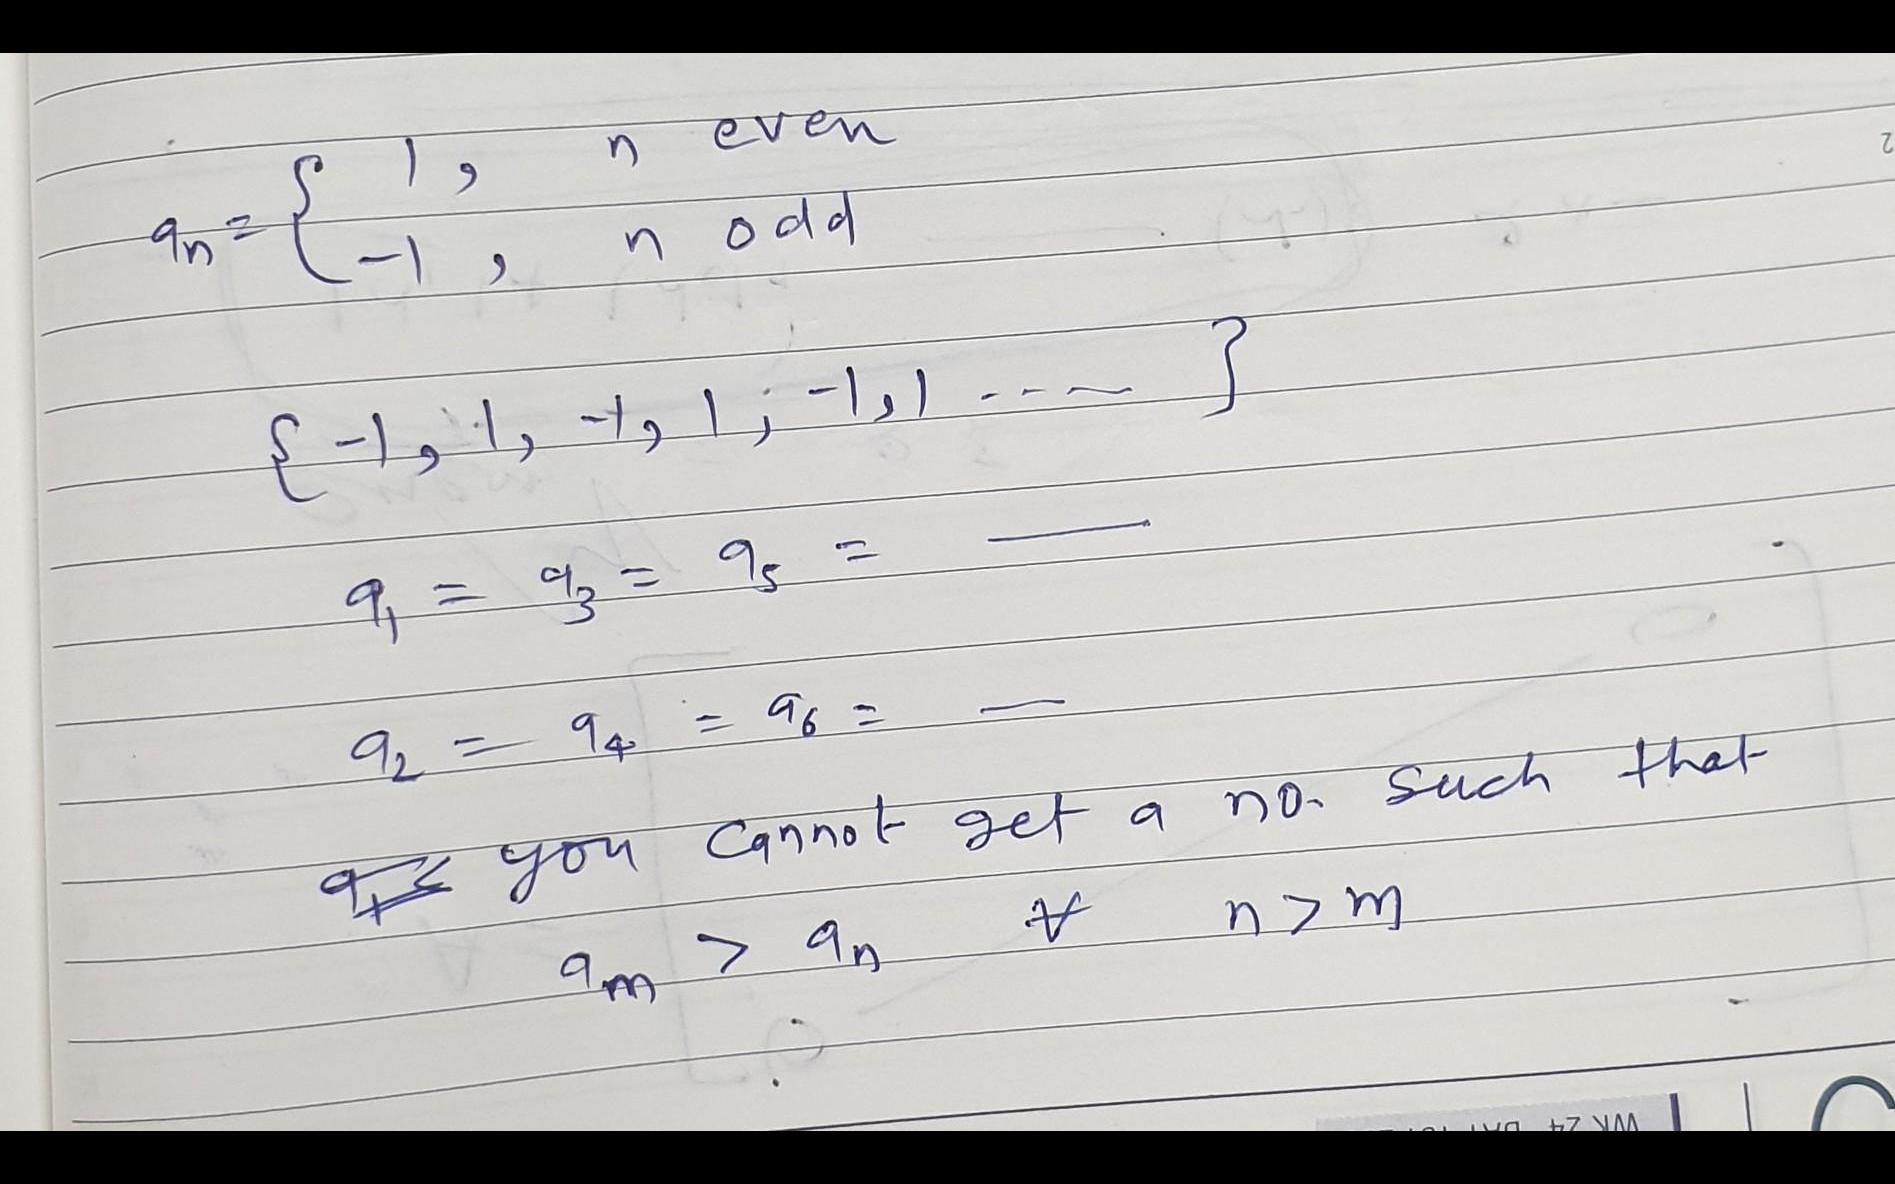 aₙ = { 1, n even
-1, n odd
{ -1, 1, -1, 1, -1, 1 ---- }
a₁ = a₃ = a₅ = —
a₂ = a₄ = a₆ = —
you cannot get a no. such that
aₘ > aₙ ∀ n > m
WK 24